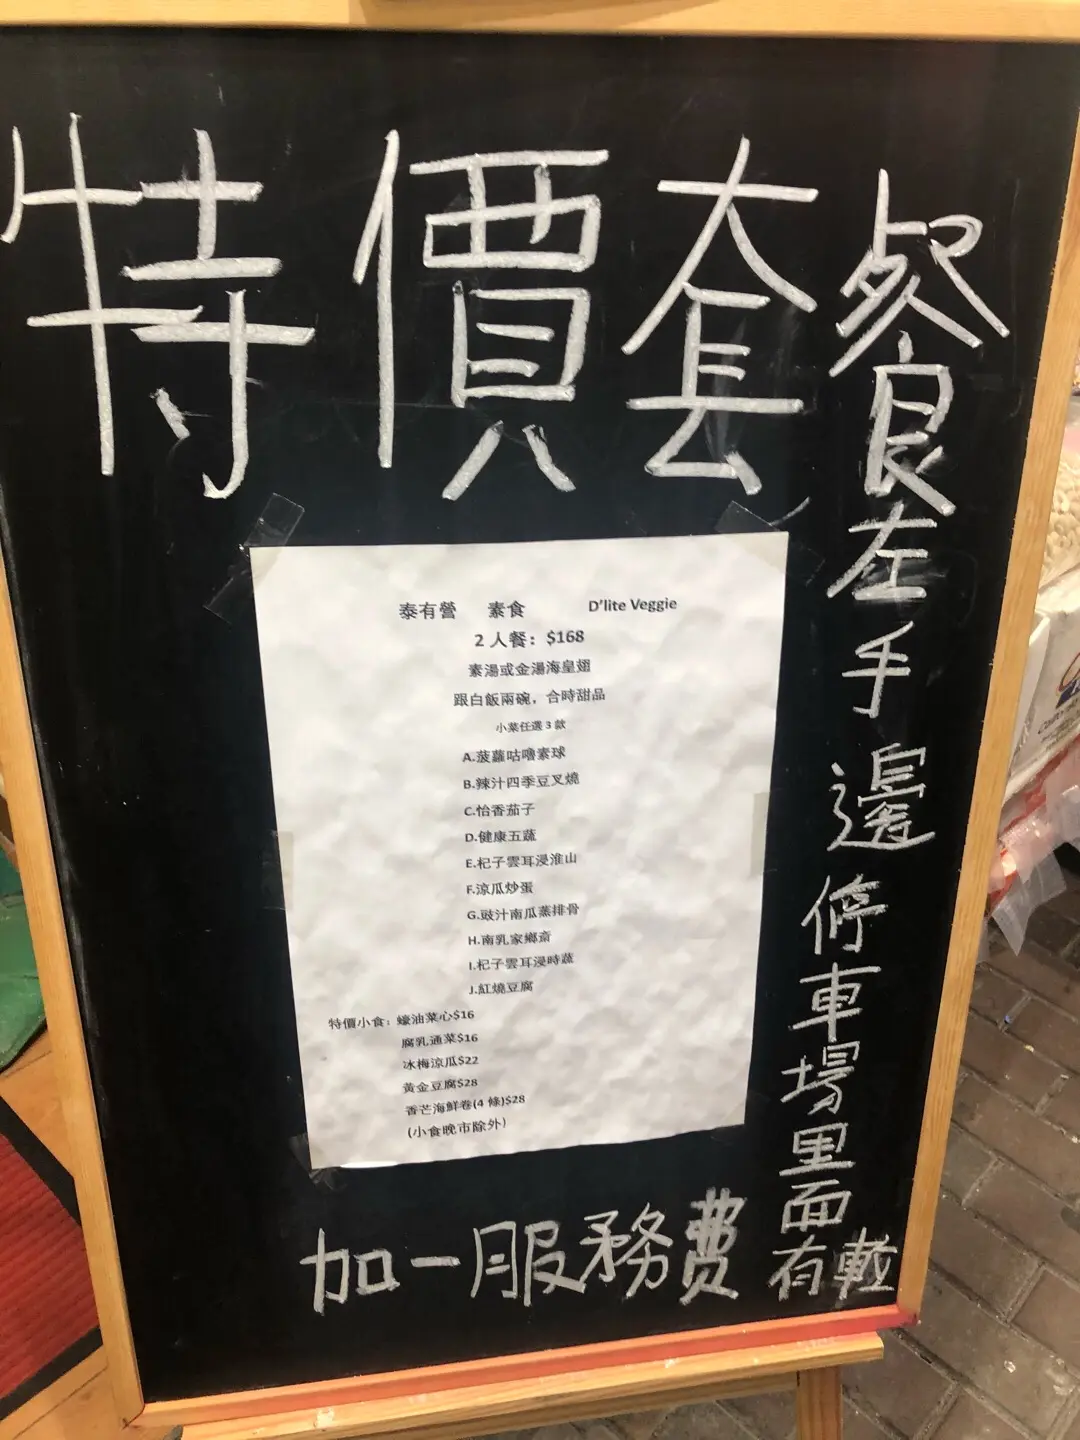 特價套餐
左手邊停車場里面有軚
泰有營 素食 D'lite Veggie
2 人餐：$168
素湯或金湯海皇翅
跟白飯兩碗，合時甜品
小菜任選 3 款
A.菠蘿咕嚕素球
B.辣汁四季豆叉燒
C.怡香茄子
D.健康五蔬
E.杞子雲耳浸淮山
F.涼瓜炒蛋
G.豉汁南瓜蒸排骨
H.南乳家鄉齋
I.杞子雲耳浸時蔬
J.紅燒豆腐
特價小食：蠔油菜心$16
腐乳通菜$16
冰梅涼瓜$22
黃金豆腐$28
香芒海鮮卷(4 條)$28
(小食晚市除外)
加一服務費